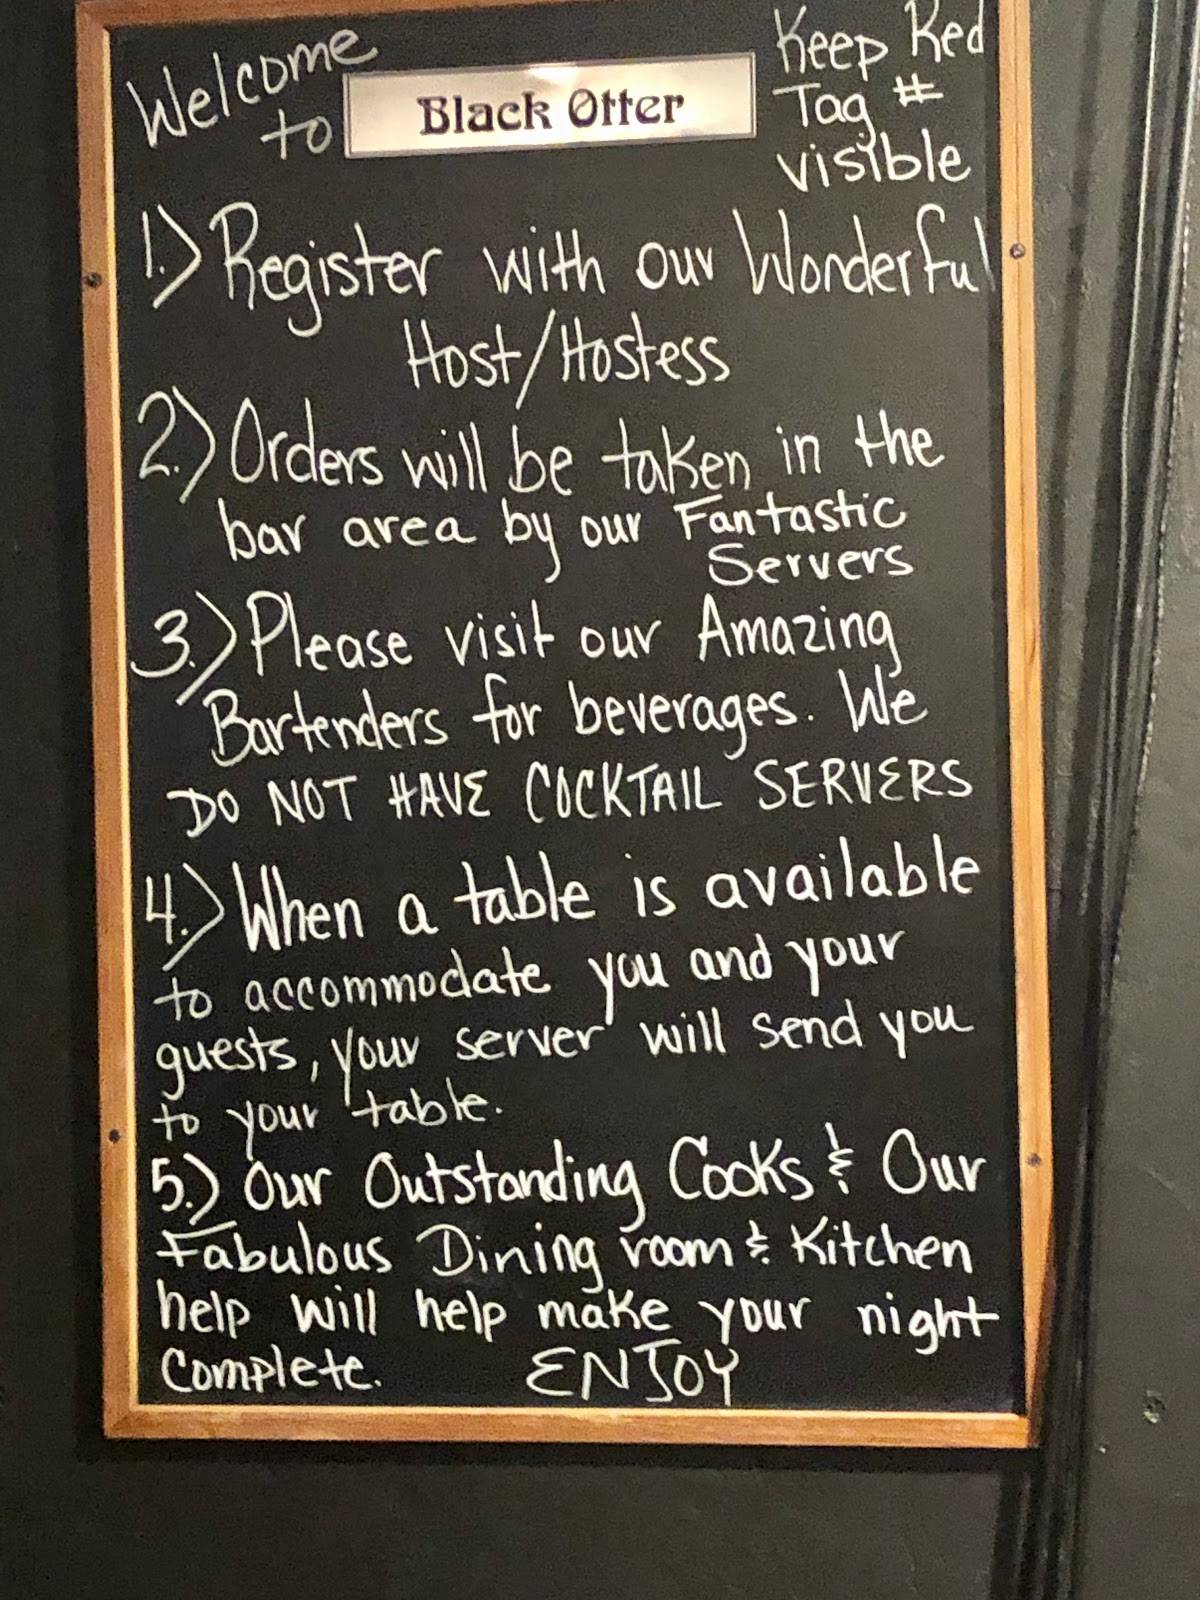 Welcome
to
Black Otter
Keep Red
Tag #
visible
1.) Register with our Wonderful
Host/Hostess
2.) Orders will be taken in the
bar area by our Fantastic
Servers
3.) Please visit our Amazing
Bartenders for beverages. We
DO NOT HAVE COCKTAIL SERVERS
4.) When a table is available
to accommodate you and your
guests, your server will send you
to your table.
5.) Our Outstanding Cooks & Our
Fabulous Dining room & Kitchen
help will help make your night
Complete. ENJOY